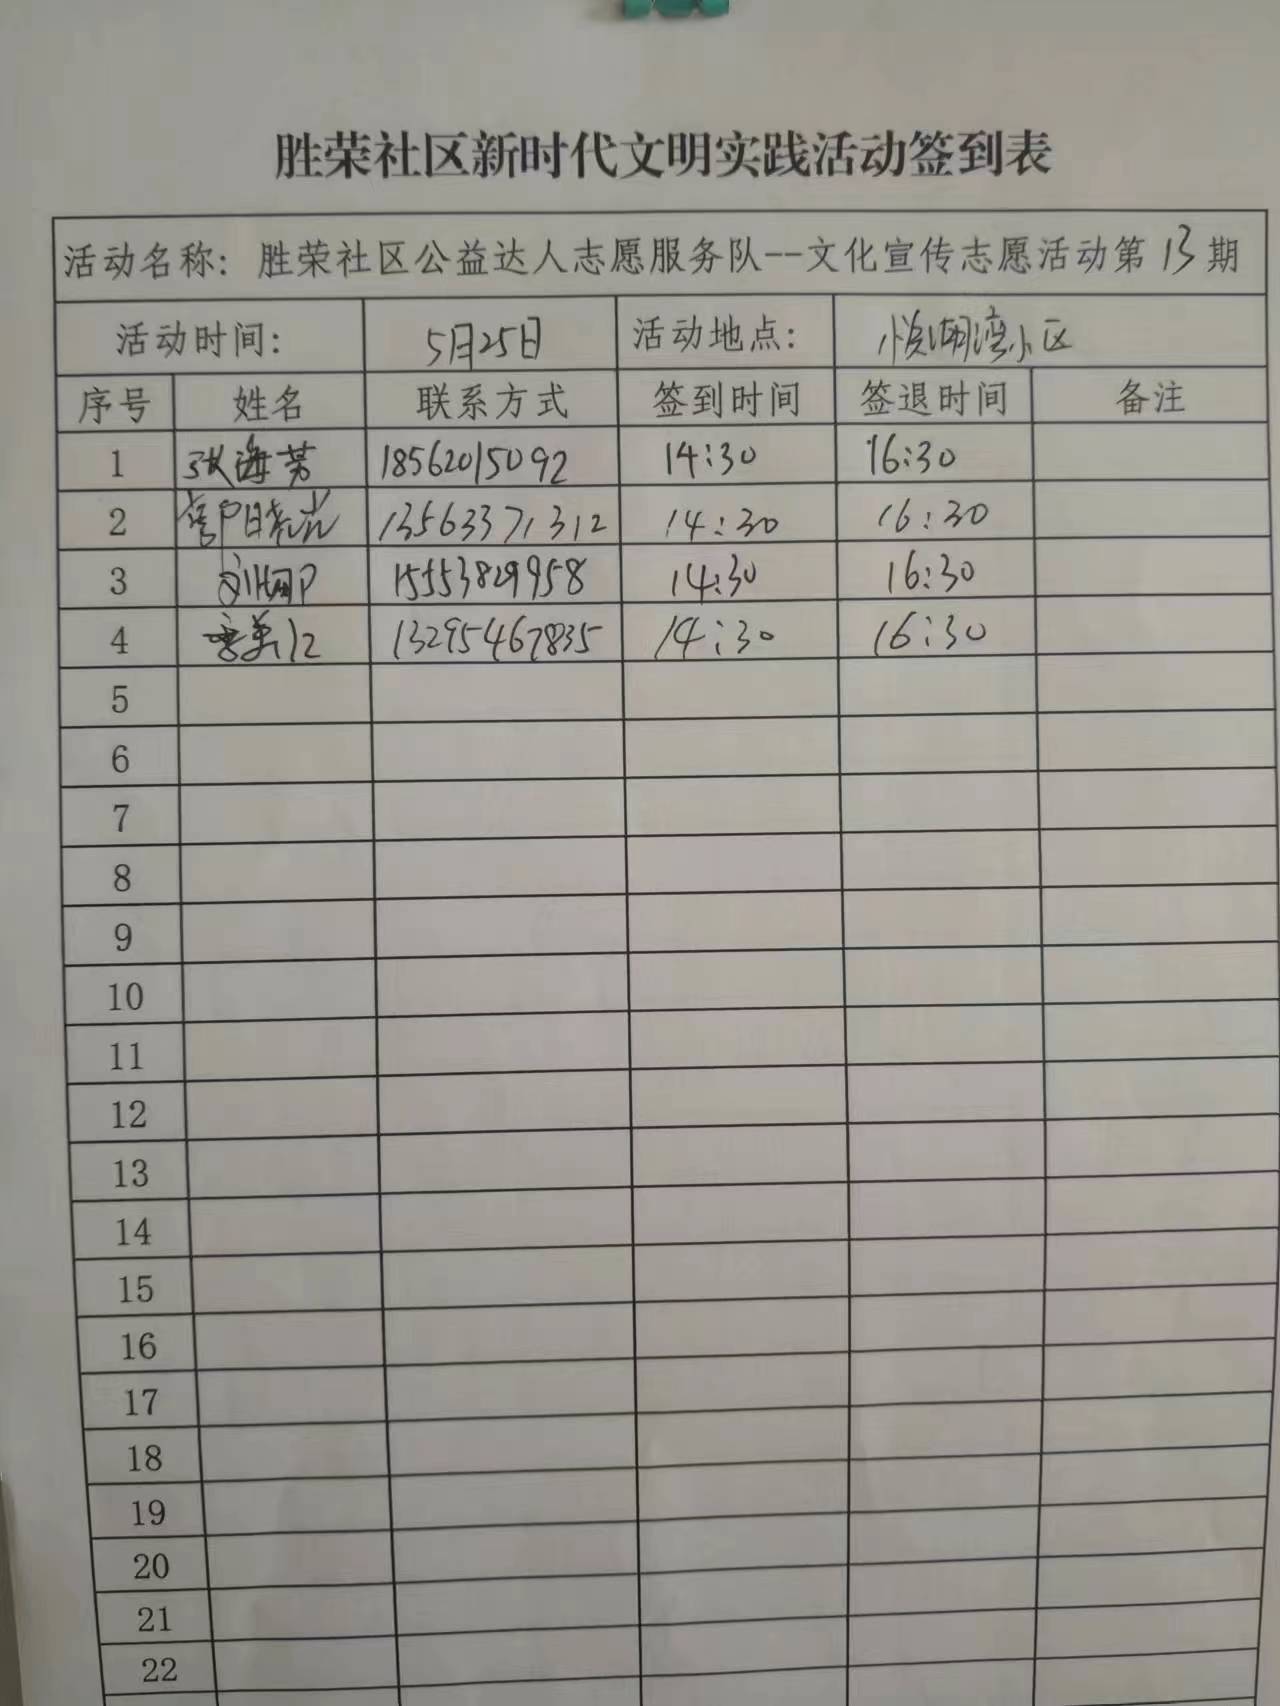 胜荣社区新时代文明实践活动签到表
活动名称：胜荣社区公益达人志愿服务队--文化宣传志愿活动第13期
活动时间： 5月25日 活动地点： 悦湖湾小区
序号 姓名 联系方式 签到时间 签退时间 备注
1 张海芳 18562015092 14:30 16:30
2 13563371312 14:30 16:30
3 15553829958 14:30 16:30
4 13295467835 14:30 16:30
5
6
7
8
9
10
11
12
13
14
15
16
17
18
19
20
21
22